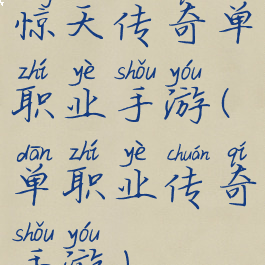 惊天传奇单
zhí yè shǒu yóu
职业手游(
dān zhí yè chuán qí
单职业传奇
shǒu yóu
手游)